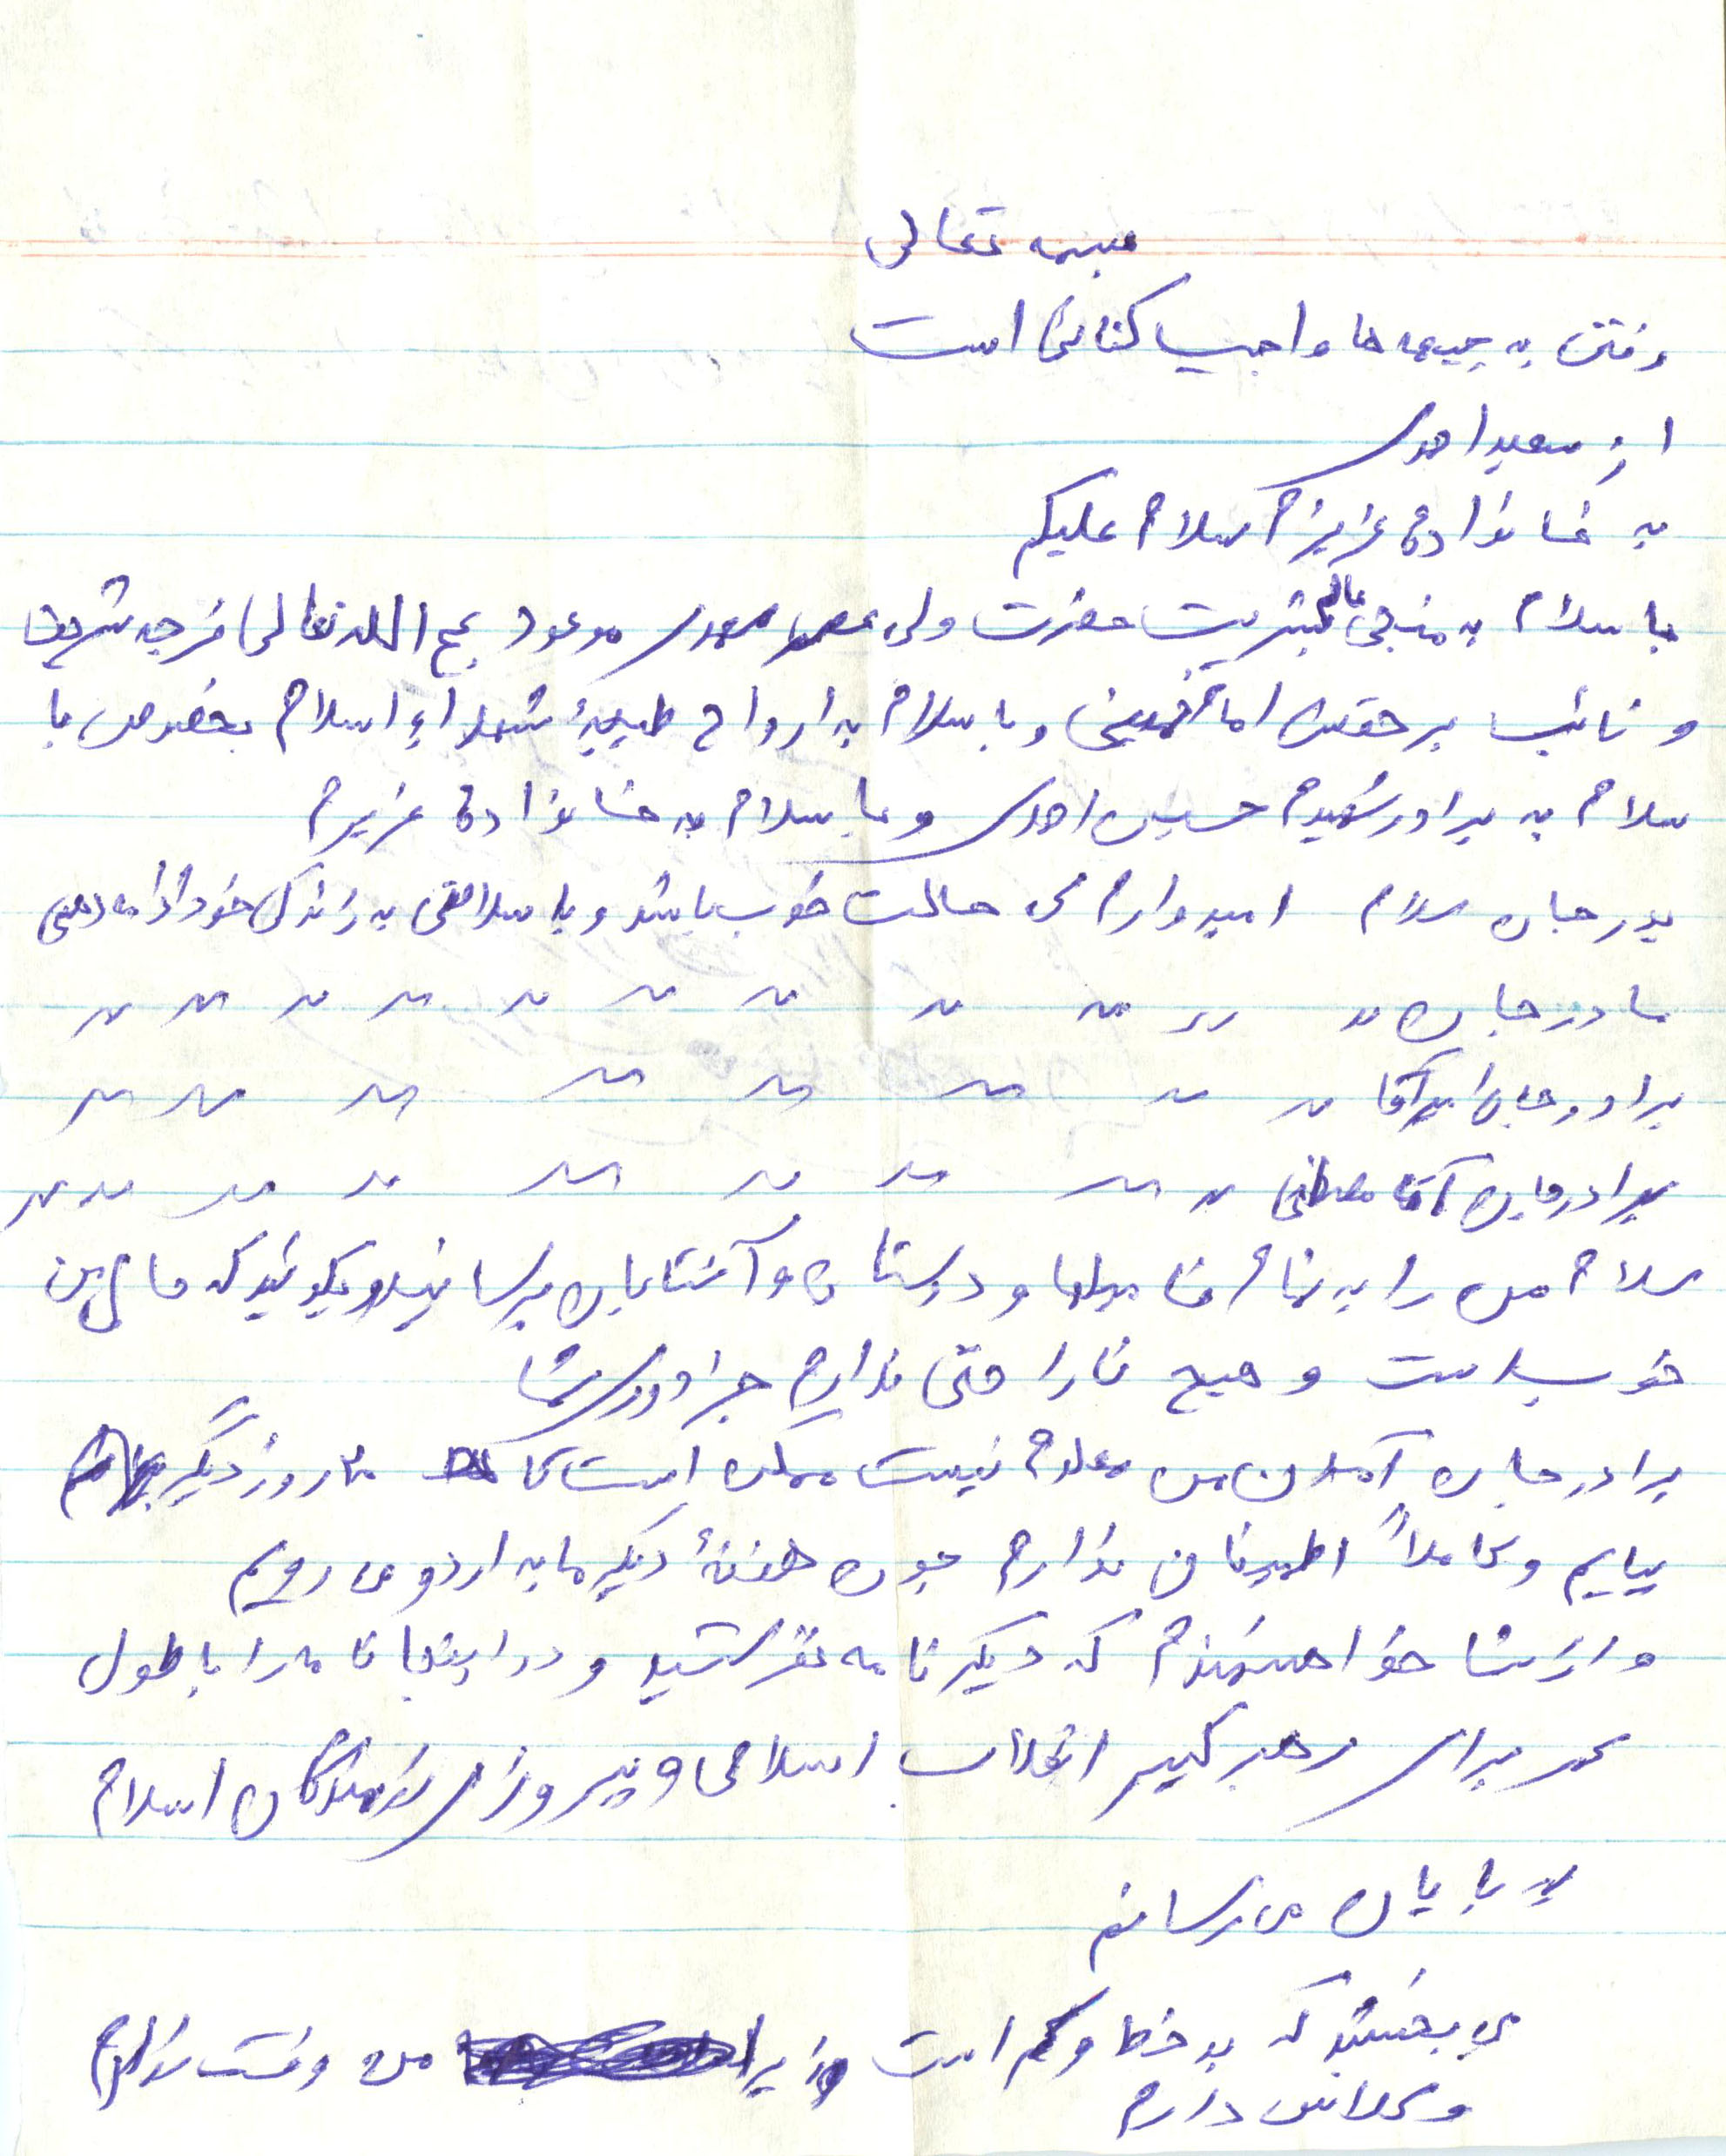 بسمه تعالی
رفتن به جبهه ها واجب کفائی است
از سعید احدی
به خانواده عزیزم سلام علیکم
با سلام به منجی عالم بشریت حضرت ولی عصر مهدی موعود عج الله تعالی فرجه شریف
و نائب بر حقش امام خمینی و با سلام به ارواح طیبهٔ شهداء اسلام بخصوص با
سلام به برادر شهیدم حسین احدی و با سلام به خانواده عزیزم
پدر جان سلام امیدوارم که حالت خوب باشد و با سلامتی به زندگی خود ادامه دهی
مادر جان 〃 〃 〃 〃 〃 〃 〃 〃 〃 〃 〃 〃
برادر جان آقا 〃 〃 〃 〃 〃 〃 〃 〃 〃
برادر جان آقا مصطفی 〃 〃 〃 〃 〃 〃 〃 〃 〃
سلام من را به تمام فامیلها و دوستان و آشنایان برسانید و بگوئید که حال من
خوب است و هیچ ناراحتی ندارم جز دوری شما
برادر جان آمدن من معلوم نیست ممکن است تا روز دیگر
بیایم و کاملاً اطمینان ندارم چون هفتهٔ دیگر ما به اردو می رویم
و از شما خواهشمندم که دیگر نامه نفرستید و در اینجا نامه را با طول
عمر برای رهبر کبیر انقلاب اسلامی و پیروزی رزمندگان اسلام
به پایان می رسانم
می بخشید که بد خط و کم است زیرا من وقت ندارم
و کلاس دارم